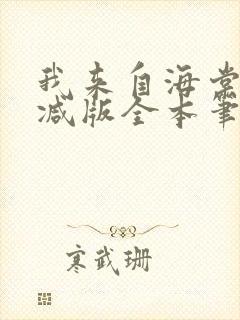 我来自海棠
减版全本笔
寒武珊